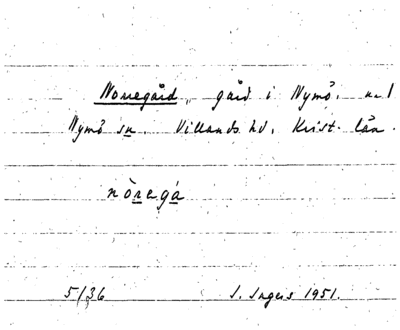 Norregård, gård i Nymö, n:r 1
Nymö sn. Villands hd. Krist. län.
nòregá
5/36 S. Ingers 1951.